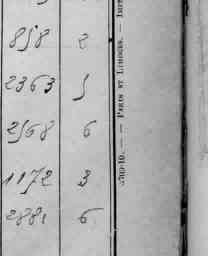 858 2
2363 5
2568 6
1172 3
2881 6
PARIS ET LIMOGES. — IMP